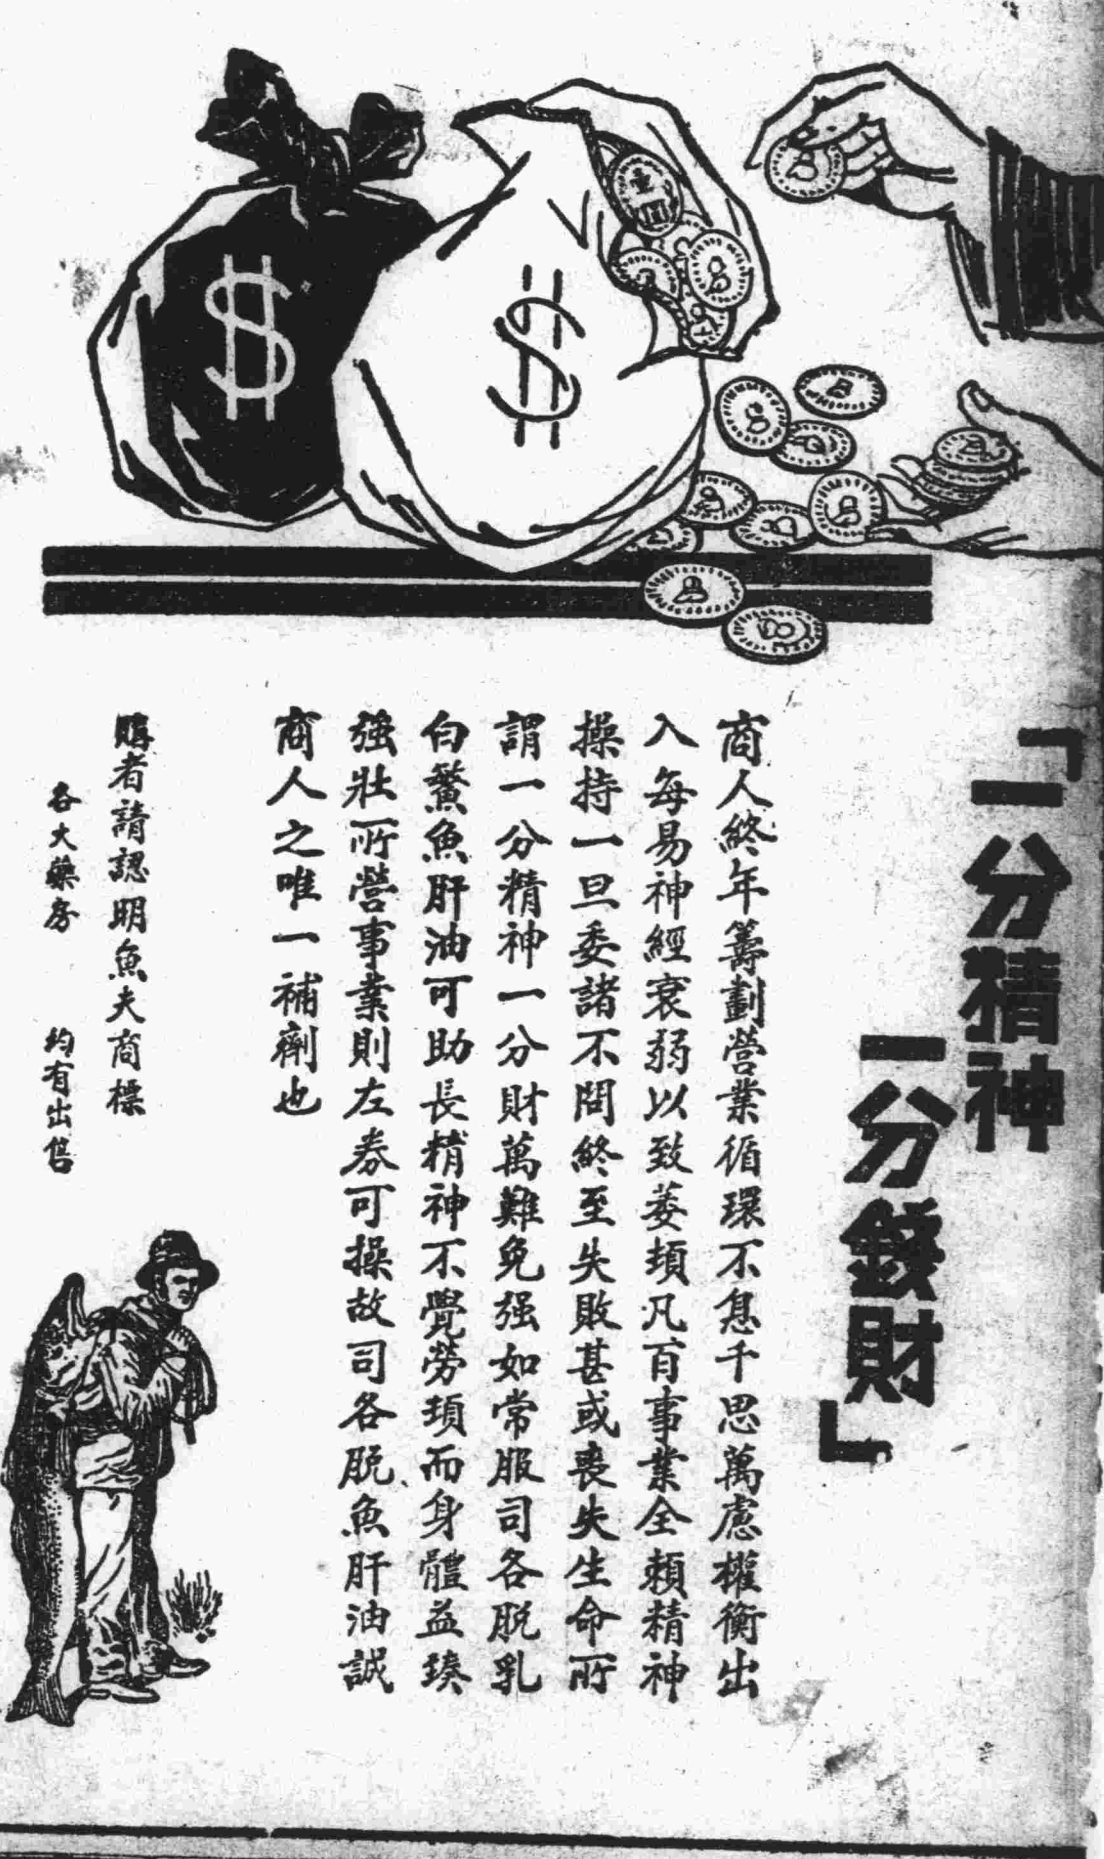 「一分精神
一分錢財」
商人終年籌劃營業循環不息千思萬慮權衡出
入每易神經衰弱以致萎頓凡百事業全賴精神
操持一旦委諸不問終至失敗甚或喪失生命所
謂一分精神一分財萬難免强如常服司各脫乳
白鰵魚肝油可助長精神不覺勞頓而身體益臻
強壯所營事業則左券可操故司各脫魚肝油誠
商人之唯一補劑也
購者請認明魚夫商標
各大藥房 均有出售
$
$